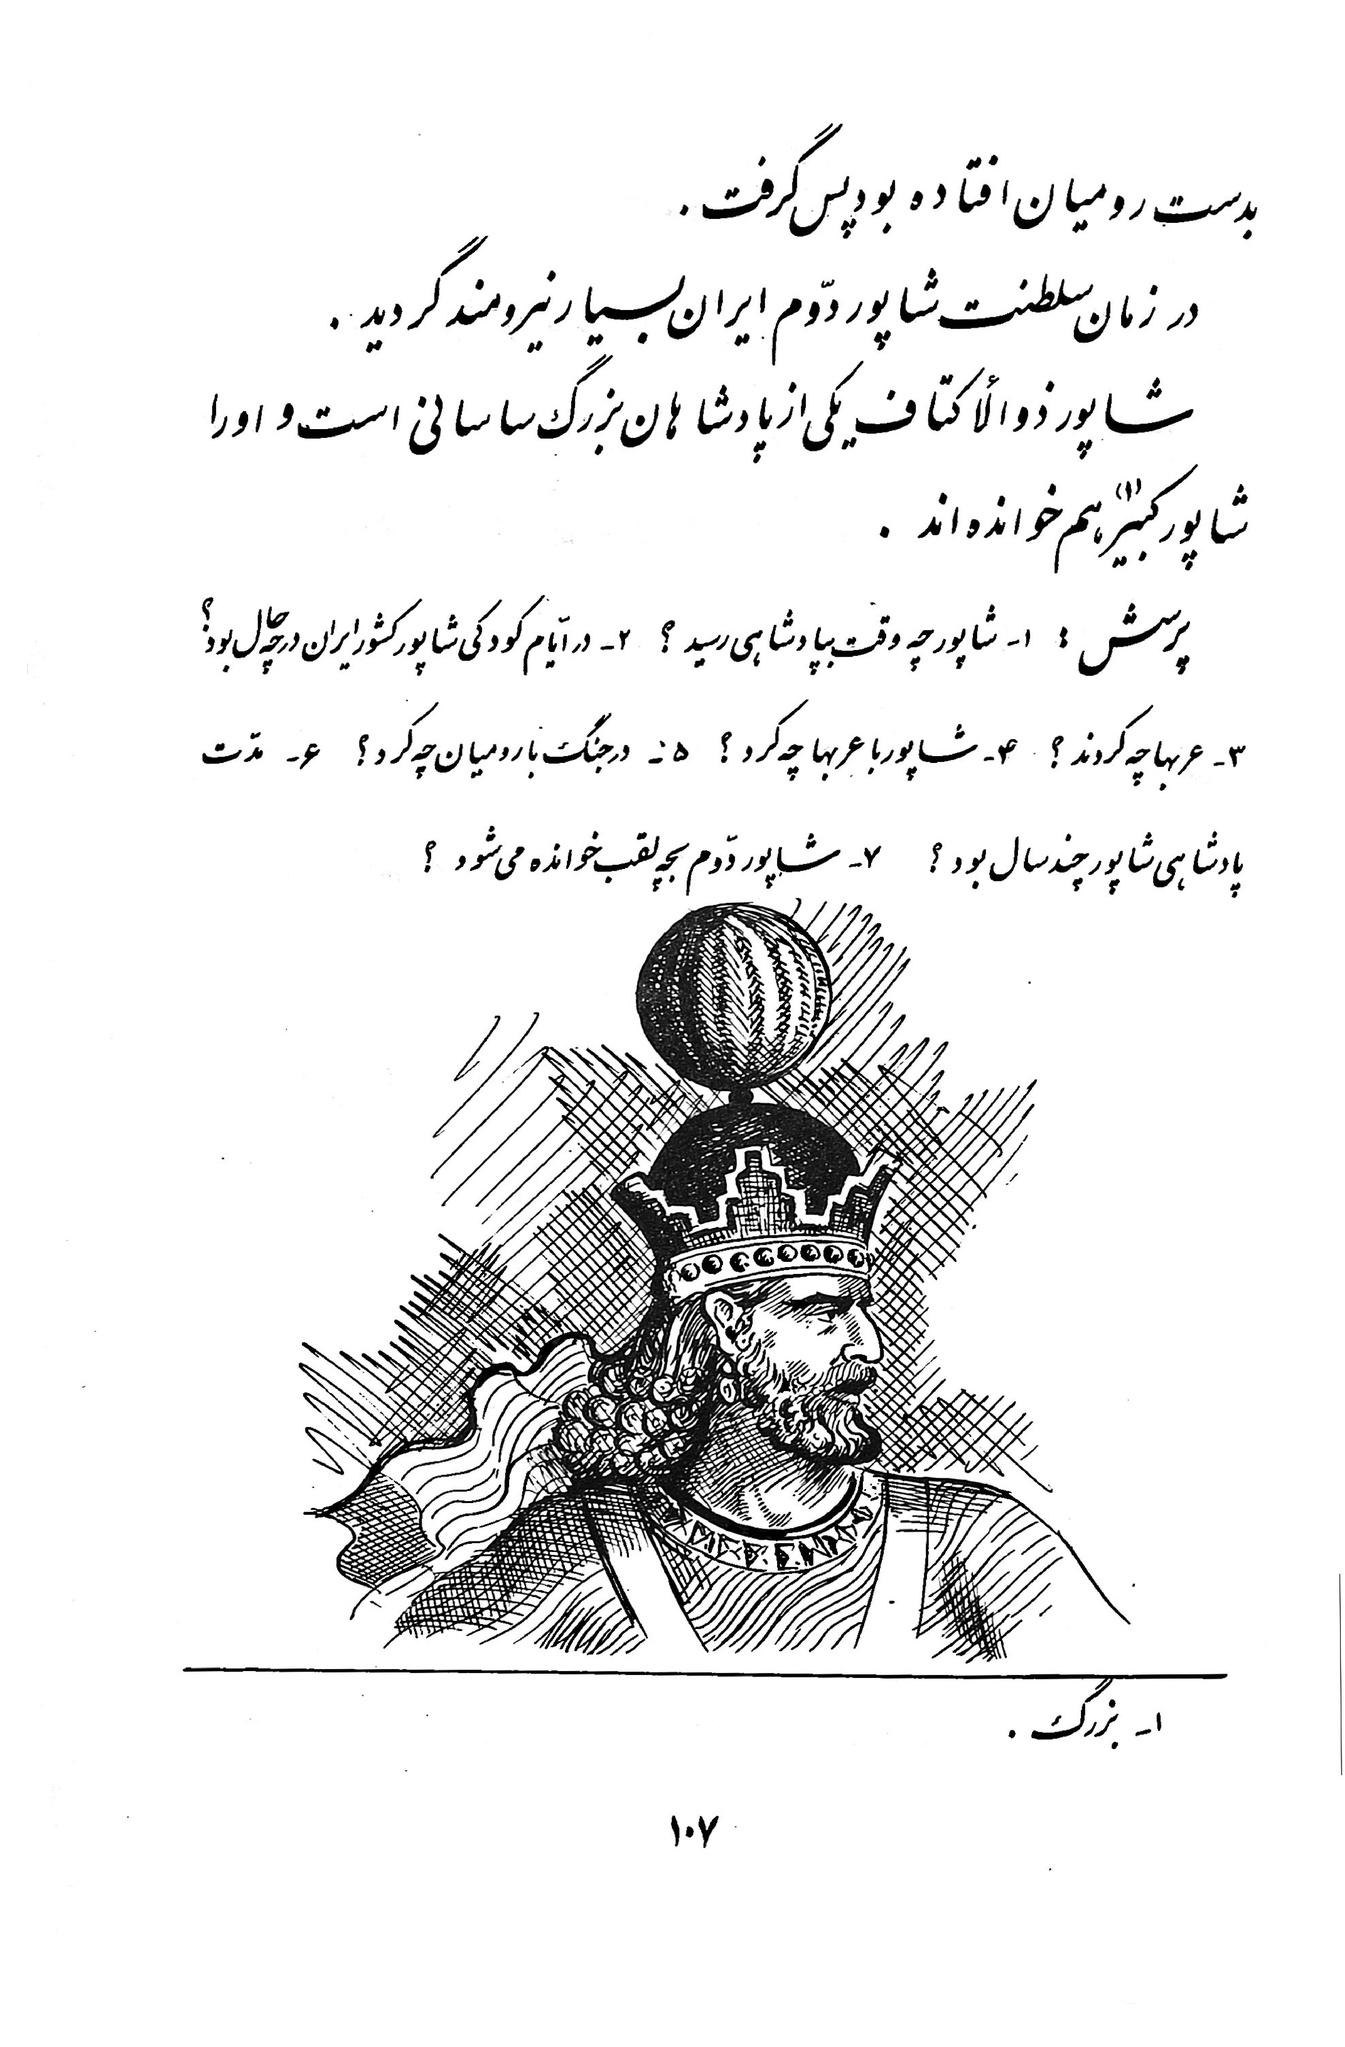 بدست رومیان افتاده بود پس گرفت .
در زمان سلطنت شاپور دوّم ایران بسیار نیرومند گردید .
شاپور ذوالأکتاف یکی از پادشاهان بزرگ ساسانی است و او را
شاپور کبیر(۱) هم خوانده‌اند .
پرسش : ۱ـ شاپور چه وقت بپادشاهی رسید ؟ ۲ـ در ایّام کودکی شاپور کشور ایران در چه حال بود ؟
۳ـ عربها چه کردند ؟ ۴ـ شاپور با عربها چه کرد ؟ ۵ـ در جنگ با رومیان چه کرد ؟ ۶ـ مدّت
پادشاهی شاپور چند سال بود ؟ ۷ـ شاپور دوّم بچه لقب خوانده می‌شود ؟
۱ـ بزرگ .
۱۰۷